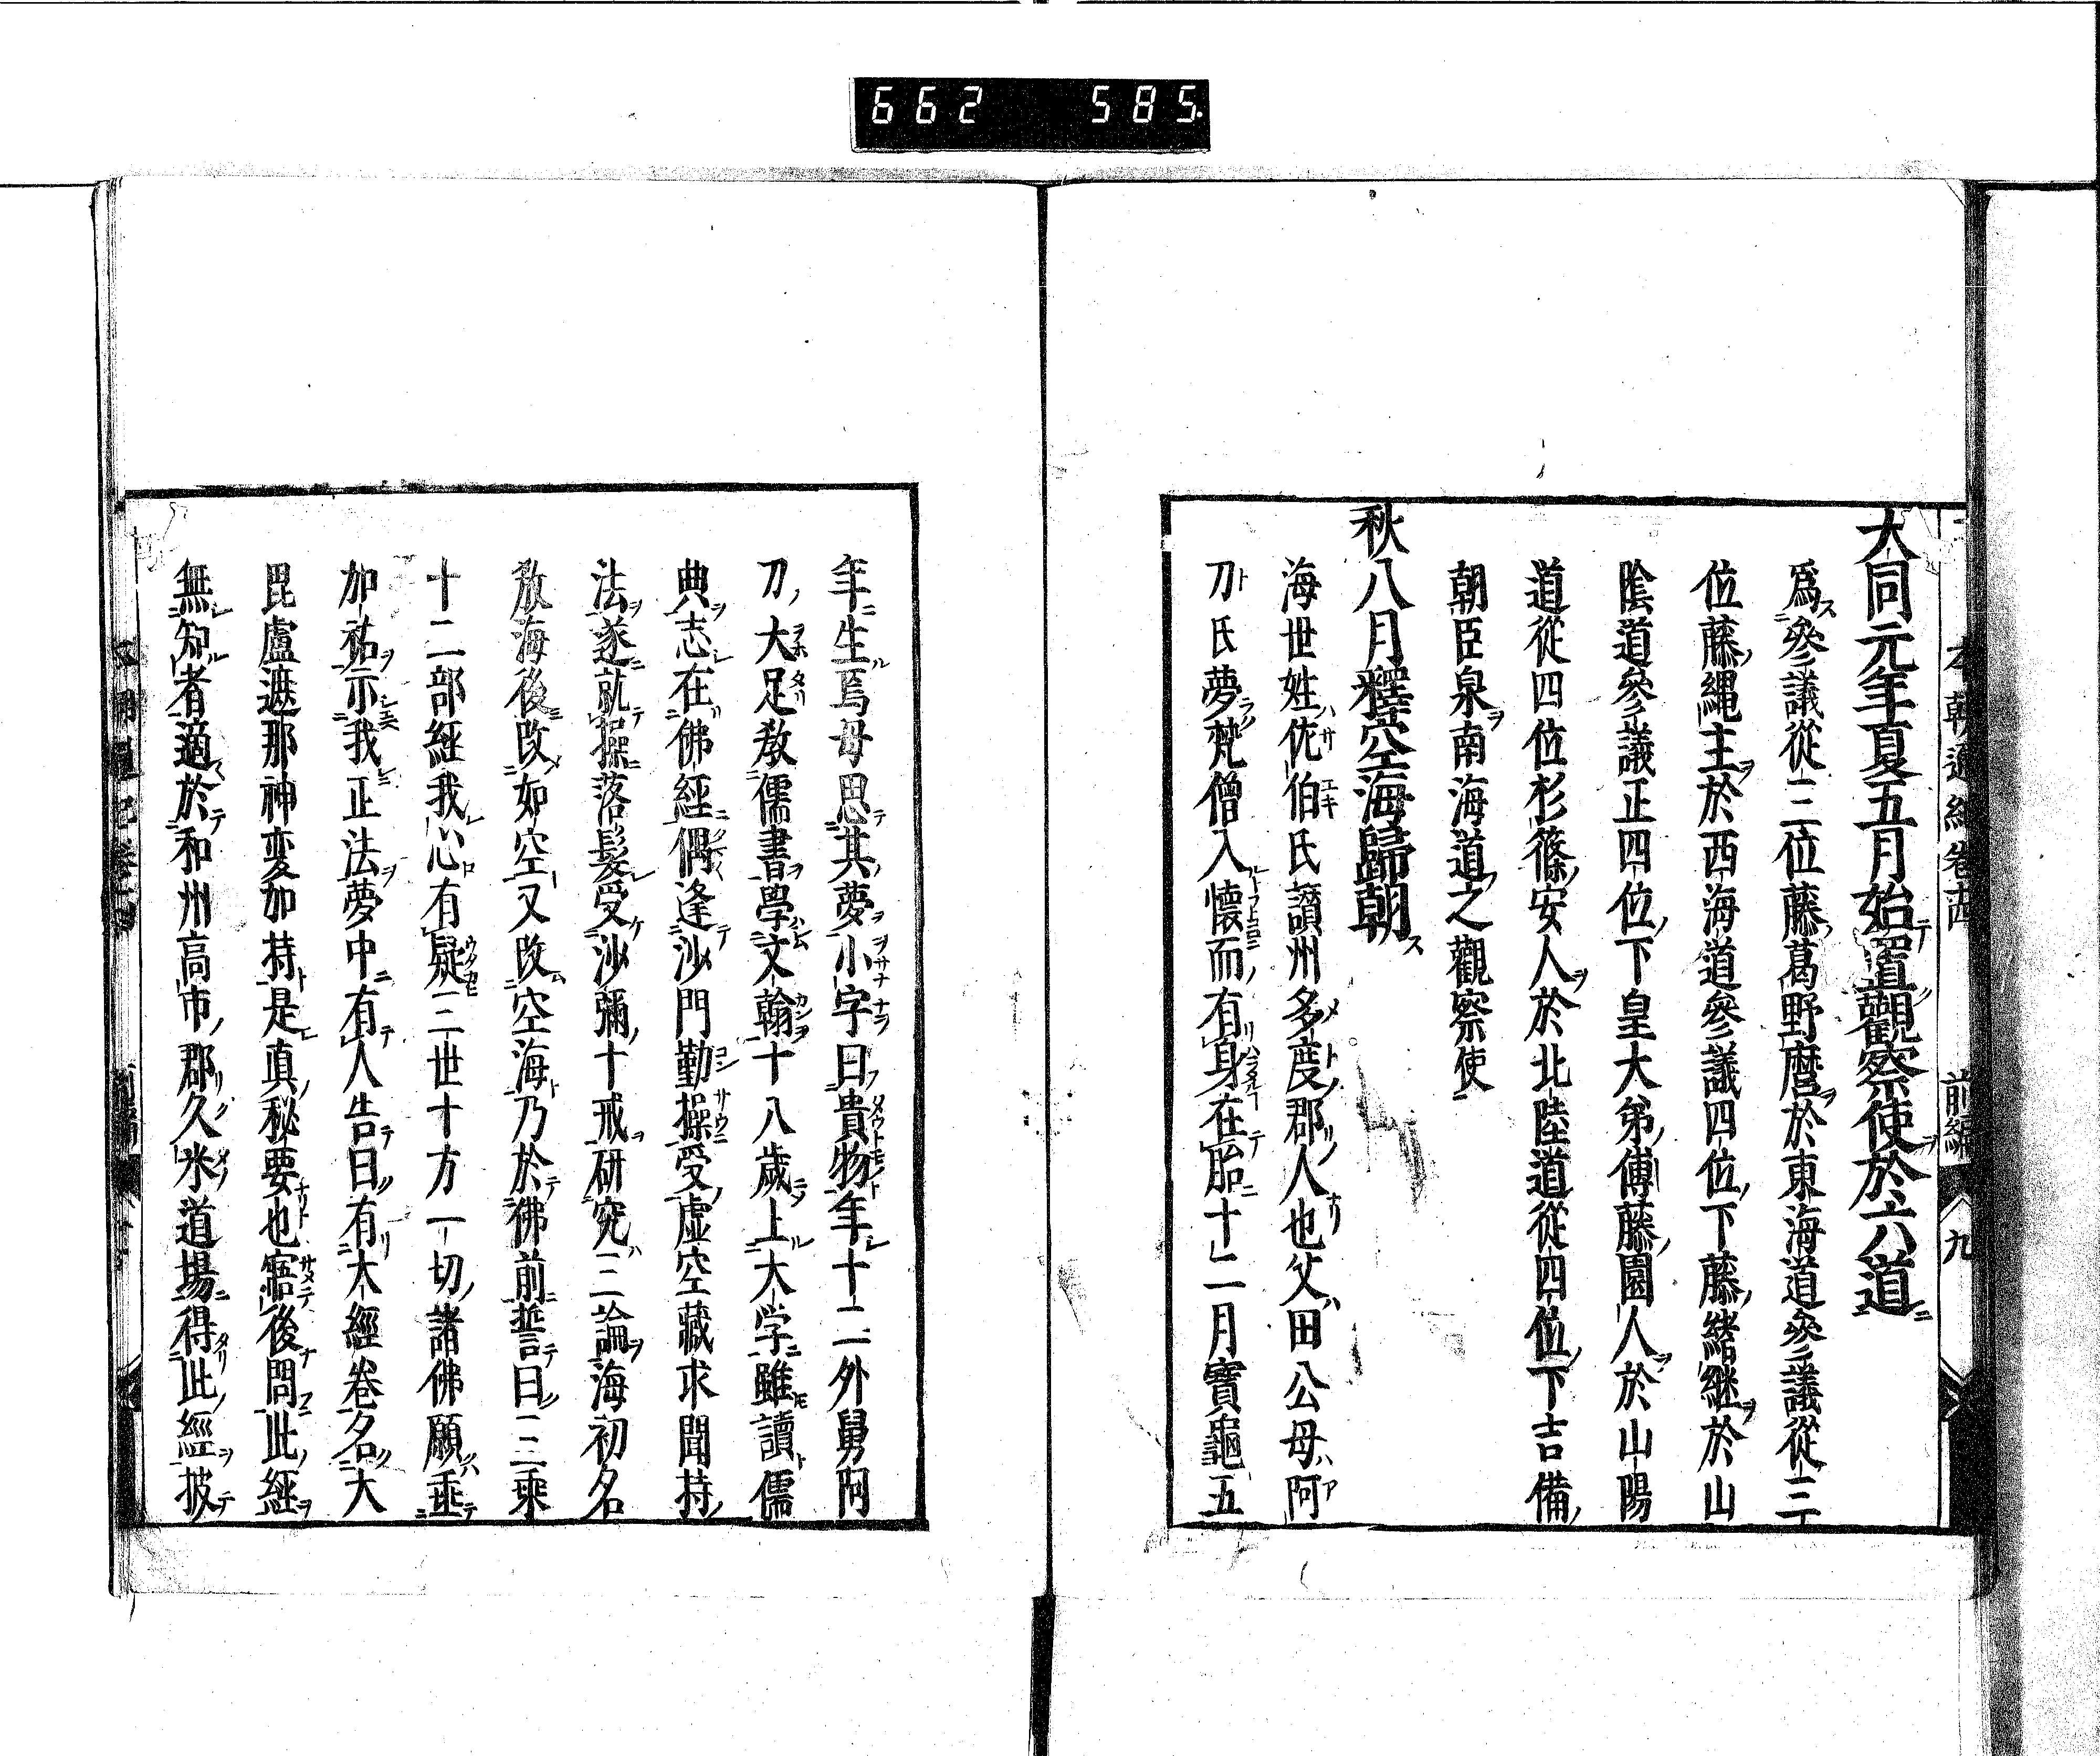 662 585
本朝通紀卷十四 前編 九
大同元年夏五月始置觀察使於六道
爲參議從三位藤葛野麿於東海道參議從三
位藤縄主於西海道參議四位下藤緒継於山
陰道參議正四位下皇大弟傅藤園人於山陽
道從四位杉篠安人於北陸道從四位下吉備
朝臣泉南海道之觀察使
秋八月釋空海歸朝
海世姓佐伯氏讃州多度郡人也父田公母阿
刀氏夢梵僧入懐而有身在胎十二月寳龜五
年生焉母思其夢小字曰貴物年十二外舅阿
刀大足敎儒書學文翰十八歳上大学雖讀儒
典志在佛經偶逢沙門勤操受虚空藏求聞持
法遂就操落髮受沙彌十戒研究三論海初名
敎海後改如空又改空海乃於佛前誓曰三乘
十二部經我心有疑三世十方一切諸佛願垂
加祐示我正法夢中有人告曰有大經卷名大
毘盧遮那神変加持是真秘要也寤後問此經
無知者適於和州高市郡久米道場得此經披